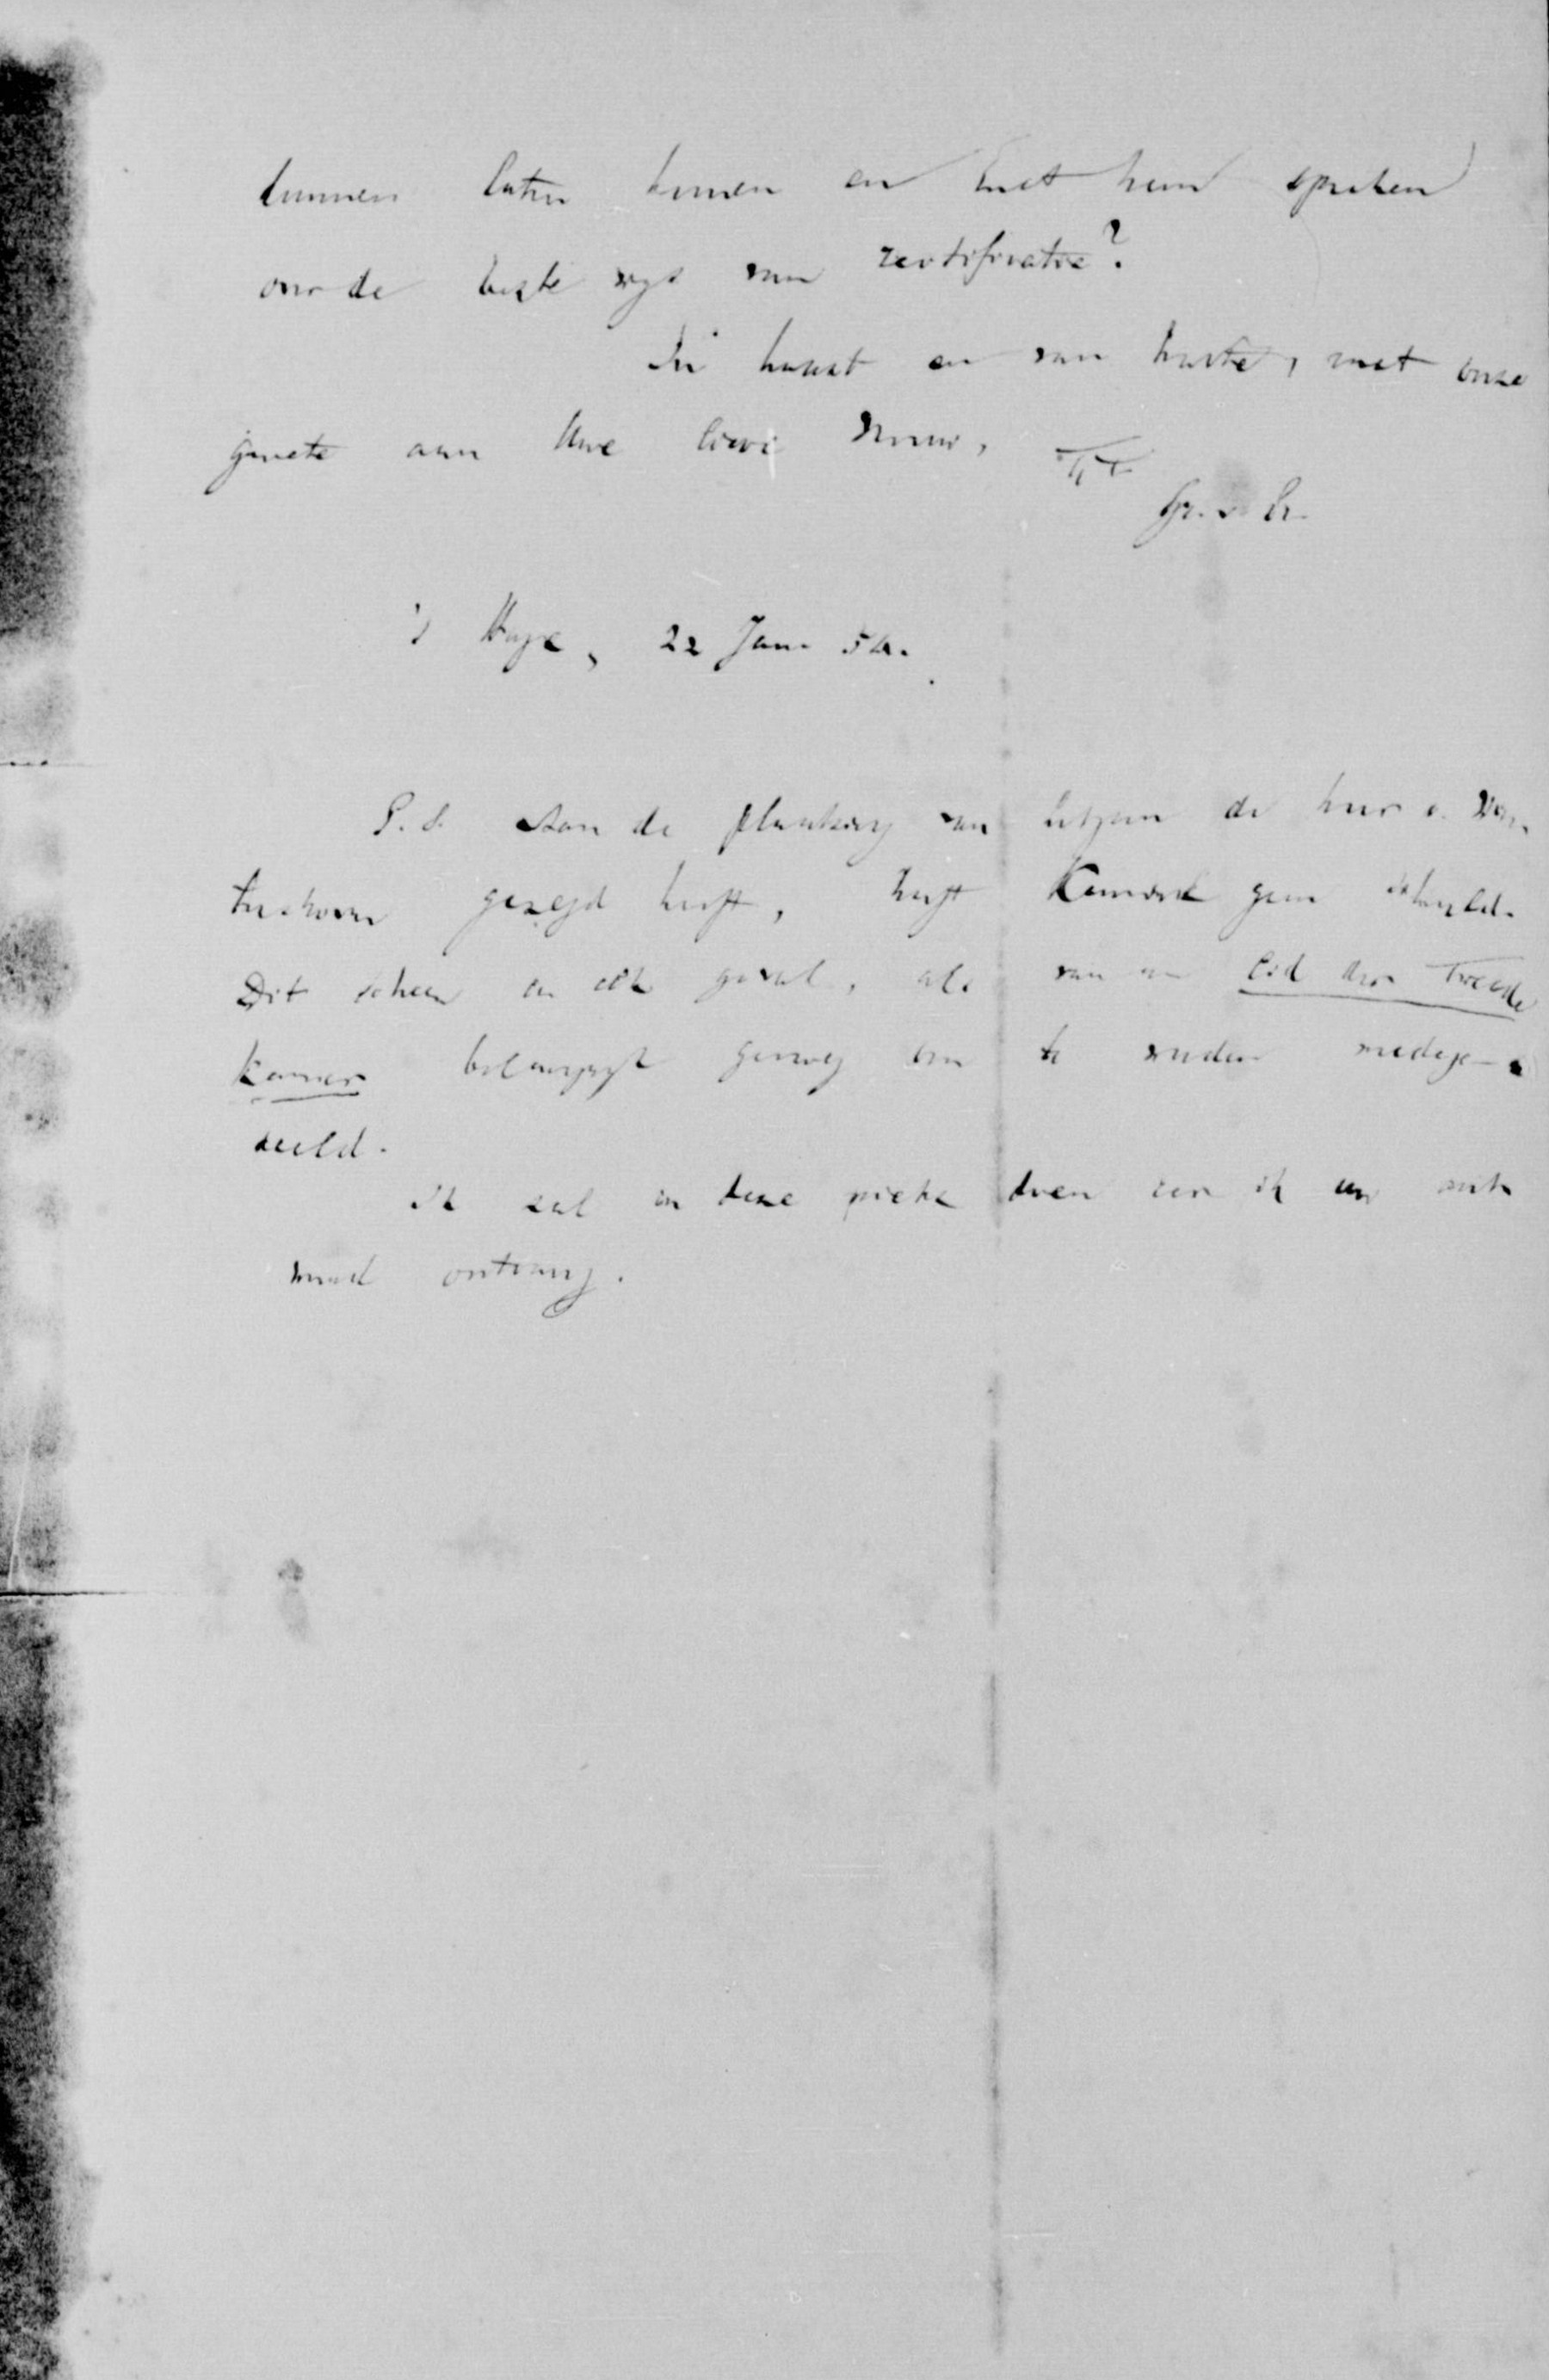 kunnen laten komen en met hem spreken
over de beste wijs van rectificatie?
In haast en van harte, met onze
groete aan Uwe lieve vrouw,
TT
Gr. v. Pr.
's Hage, 22 Jan. 54.
P.S. Aan de plaatsing van hetgeen de heer v.
gezegd heeft, heeft geen schuld.
Dit scheen in elk geval, als van een Lid der Tweede
Kamer belangrijk genoeg om te worden medege-
deeld.
Ik zal in deze niets doen eer ik uw ant
woord ontvang.